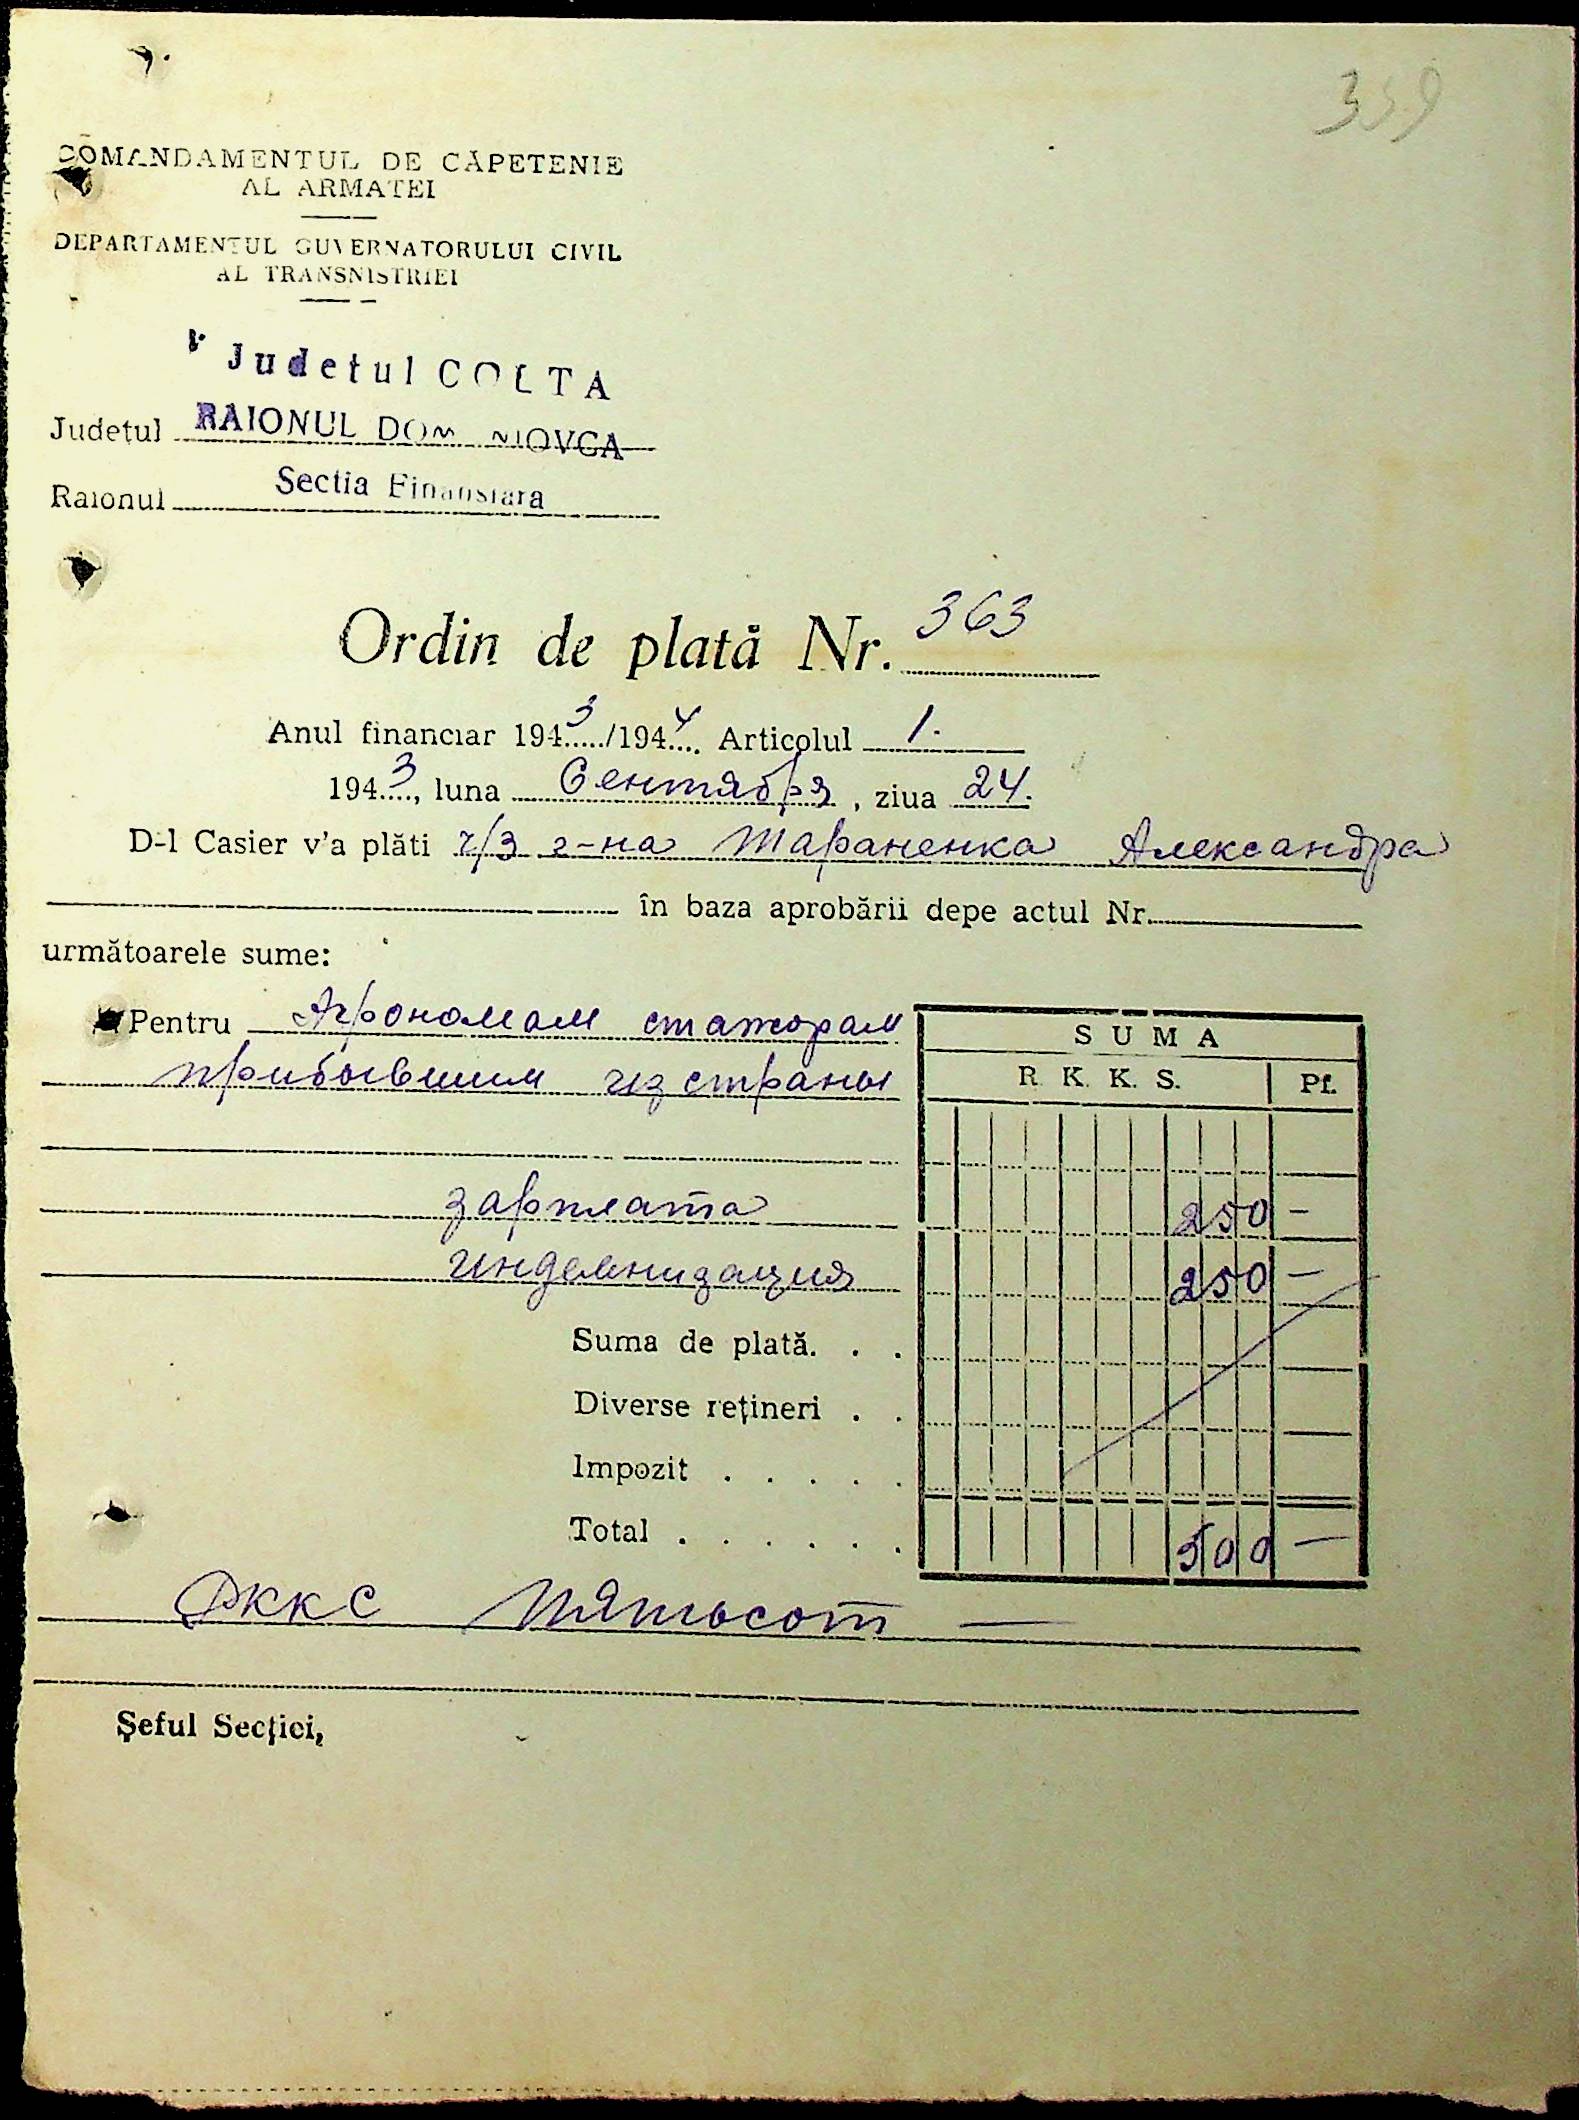 359
COMANDAMENTUL DE CĂPETENIE
AL ARMATEI
DEPARTAMENTUL GUVERNATORULUI CIVIL
AL TRANSNISTRIEI
Judetul COLTA
Judeţul RAIONUL DOM NIOVCA
Raionul Sectia Finansiara
Ordin de plată Nr. 363
Anul financiar 1943/1944. Articolul 1.
1943, luna Сентября, ziua 24.
D-l Casier v'a plăti ч/з г-на Тараненка Александра
în baza aprobării depe actul Nr.
următoarele sume:
Pentru Агрономам стажорам
прибывшим из страны
SUMA
R. K. K. S. Pf.
зарплата 250 —
индемнизация 250 —
Suma de plată. . .
Diverse reţineri . .
Impozit . . . . .
Total . . . . . . 500 —
РККС Пятьсот —
Şeful Secţiei,